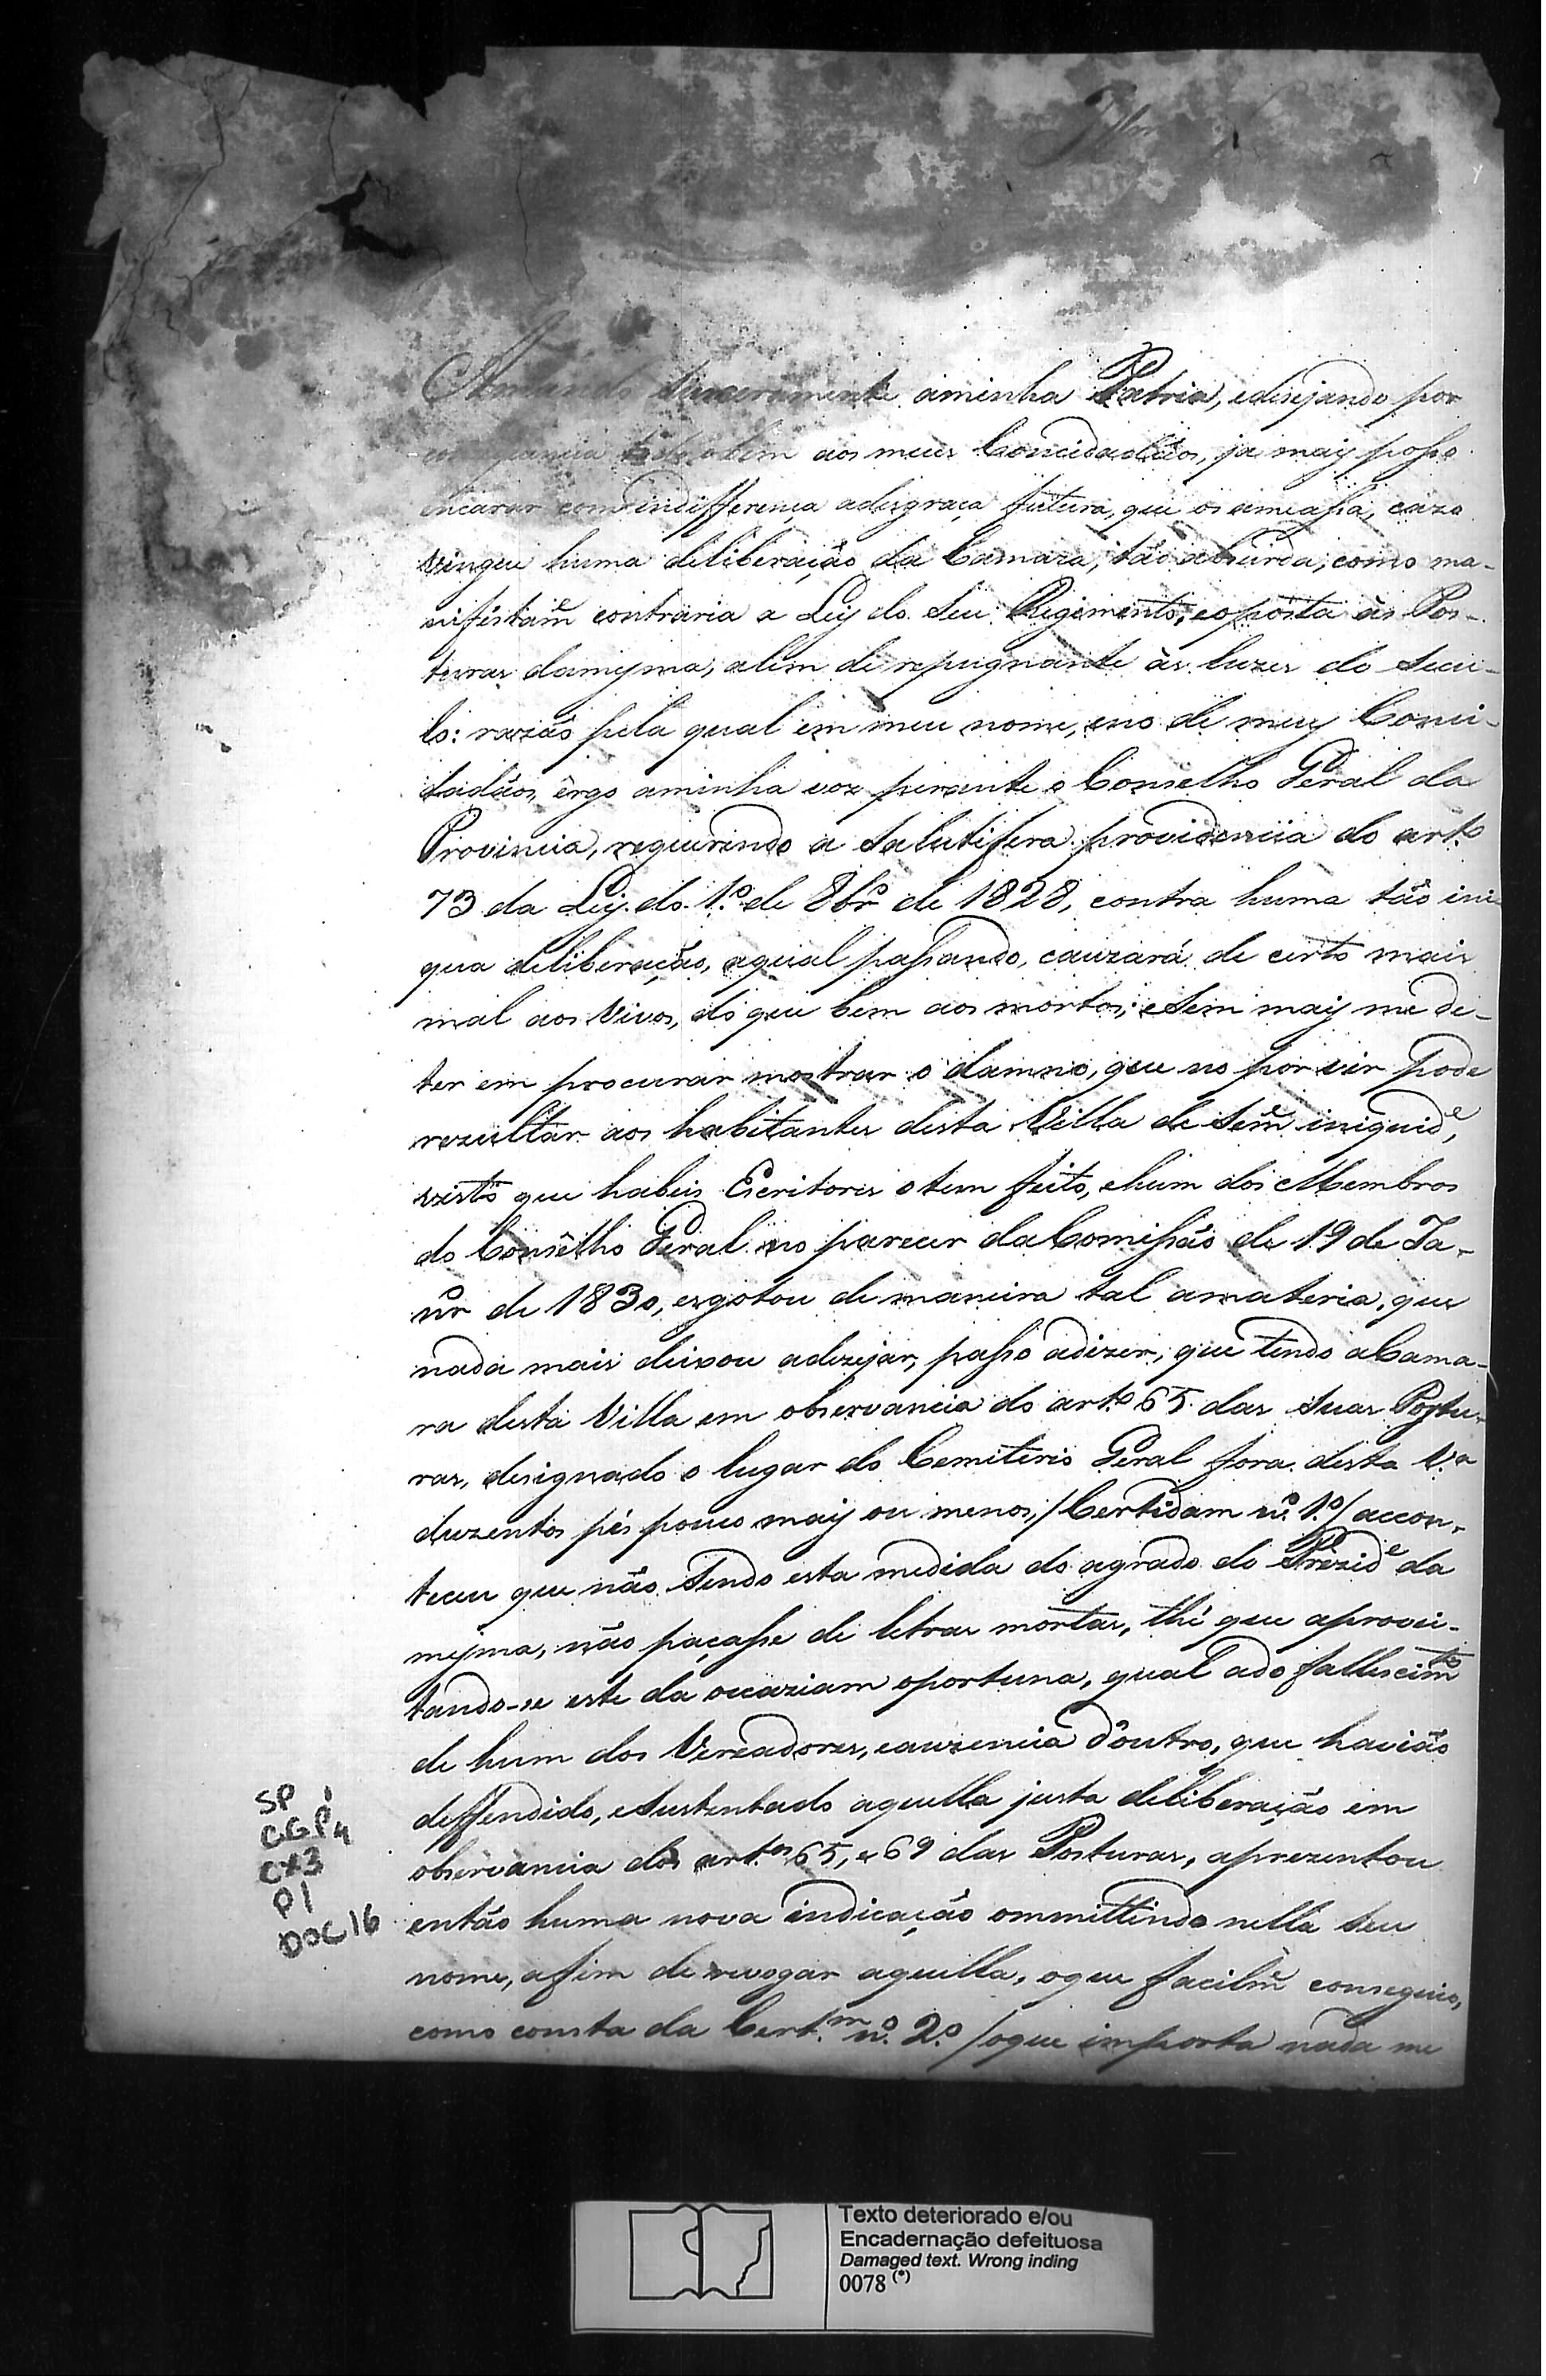 Illm
Amando sinceramente aminha Patria, edisejando por
todo obem aos meus Concidadãos, ja may posso
encarar com indifferença adisgraça futura, que os ameassa, cazo
vingue huma deliberação da Camara, tão absurda, como ma-
nifestam̃e contraria a Ley do Seu Regimento, e oposta às Pos-
turas damesma, alem de repugnante às luzes do Secu-
lo: razão pela qual em meu nome, eno de meus Conci-
dadãos, êrgo aminha voz perante o Conselho Geral da
Provincia, requerindo a Salutifera providencia do art.º
73 da Ley do 1.º de 8br.º de 1828, contra huma tão ini-
qua deliberação, aqual passando, cauzará de certo mais
mal aos Vivos, do que bem aos mortos; eSem may me de-
ter em procurar mostrar o damno, que no por vir pode
rezultar aos habitantes desta Villa de Sem̃e iniquid.e,
visto que habeis Escritores otem feito, ehum dos Membros
do Consêlho Geral no parecer daComissão de 19 de Ja-
nr.º de 1830, esgotou de maneira tal amateria, que
nada mais deixou adezejar, passo adizer, que tendo aCama-
ra desta Villa em observancia do art.º 65 das Suas Postu-
ras, designado o lugar do Cemiterio Geral fora desta V.a
duzentos pés pouco may ou menos, /Certidam n.º 1.º/ accon-
teceu que não Sendo esta medida do agrado do Prezid.e da
mesma, não paçasse de letras mortas, thé que aprovei-
tando-se este da occaziam oportuna, qual ado fallescim.to
de hum dos Vereadores, eauzencia d'outro, que havião
deffendido, eSustentado aquella justa deliberação em
observancia dos art.os 65, e 69 das Posturas, aprezentou
então huma nova indicação ommittindo nella Seu
nome, afim de revogar aquella, oque facilm̃e conseguio,
como consta da Cert.m n.º 2.º /oque importa nada me
SP
CGP4
CX3
P1
DOC16
Texto deteriorado e/ou
Encadernação defeituosa
Damaged text. Wrong inding
0078 (*)